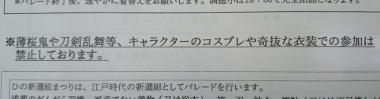 ※パレード終了後、速やかに着替えをお願いします。
※薄桜鬼や刀剣乱舞等、キャラクターのコスプレや奇抜な衣装での参加は
禁止しております。
ひの新選組まつりは、江戸時代の新選組としてパレードを行います。